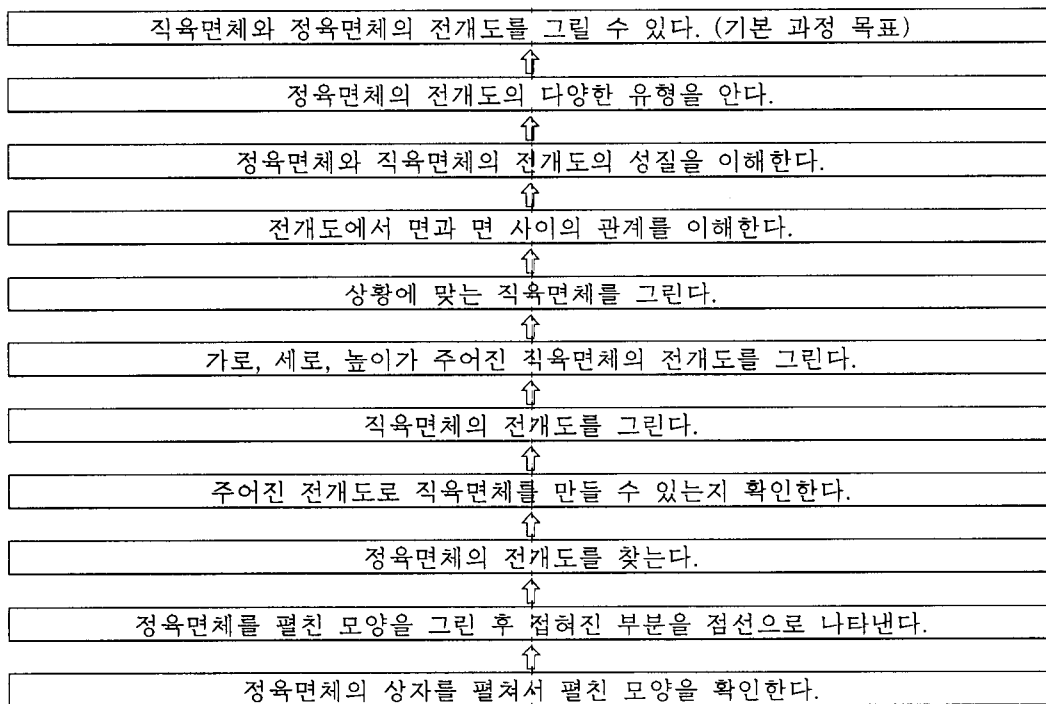 직육면체와 정육면체의 전개도를 그릴 수 있다. (기본 과정 목표)
정육면체의 전개도의 다양한 유형을 안다.
정육면체와 직육면체의 전개도의 성질을 이해한다.
전개도에서 면과 면 사이의 관계를 이해한다.
상황에 맞는 직육면체를 그린다.
가로, 세로, 높이가 주어진 직육면체의 전개도를 그린다.
직육면체의 전개도를 그린다.
주어진 전개도로 직육면체를 만들 수 있는지 확인한다.
정육면체의 전개도를 찾는다.
정육면체를 펼친 모양을 그린 후 접혀진 부분을 점선으로 나타낸다.
정육면체의 상자를 펼쳐서 펼친 모양을 확인한다.